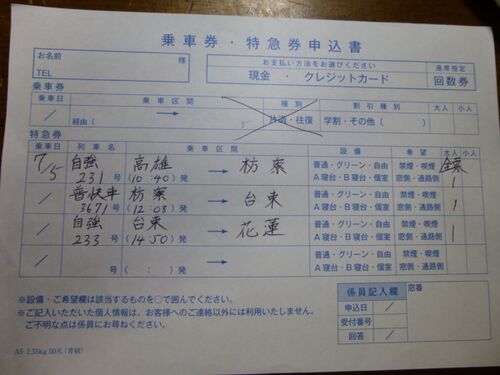 乗車券・特急券申込書
お名前 様
TEL
お支払い方法をお選びください
現金 ・ クレジットカード
座席指定
回数券
乗車券
乗車日 乗車区間 種別 割引種別 大人 小人
/ 経由( ) 片道・往復 学割・その他( )
特急券
乗車日 列車名 乗車区間 設備 希望 大人 小人
7/5 自強 231 号 高雄 (10:40)発 → 枋寮 普通・グリーン・自由 A寝台・B寝台・個室 禁煙・喫煙 窓側・通路側 1
/ 普快車 3671 号 枋寮 (12:08)発 → 台東 普通・グリーン・自由 A寝台・B寝台・個室 禁煙・喫煙 窓側・通路側 1
/ 自強 233 号 台東 (14:50)発 → 花蓮 普通・グリーン・自由 A寝台・B寝台・個室 禁煙・喫煙 窓側・通路側 1
/ 号 ( : )発 普通・グリーン・自由 A寝台・B寝台・個室 禁煙・喫煙 窓側・通路側
※設備・ご希望欄は該当するものを○で囲んでください。
※ご記入いただいた個人情報は、お客様へのご連絡以外には利用いたしません。
ご不明な点は係員にお尋ねください。
係員記入欄
申込日 /
受付番号
回答 /
窓番